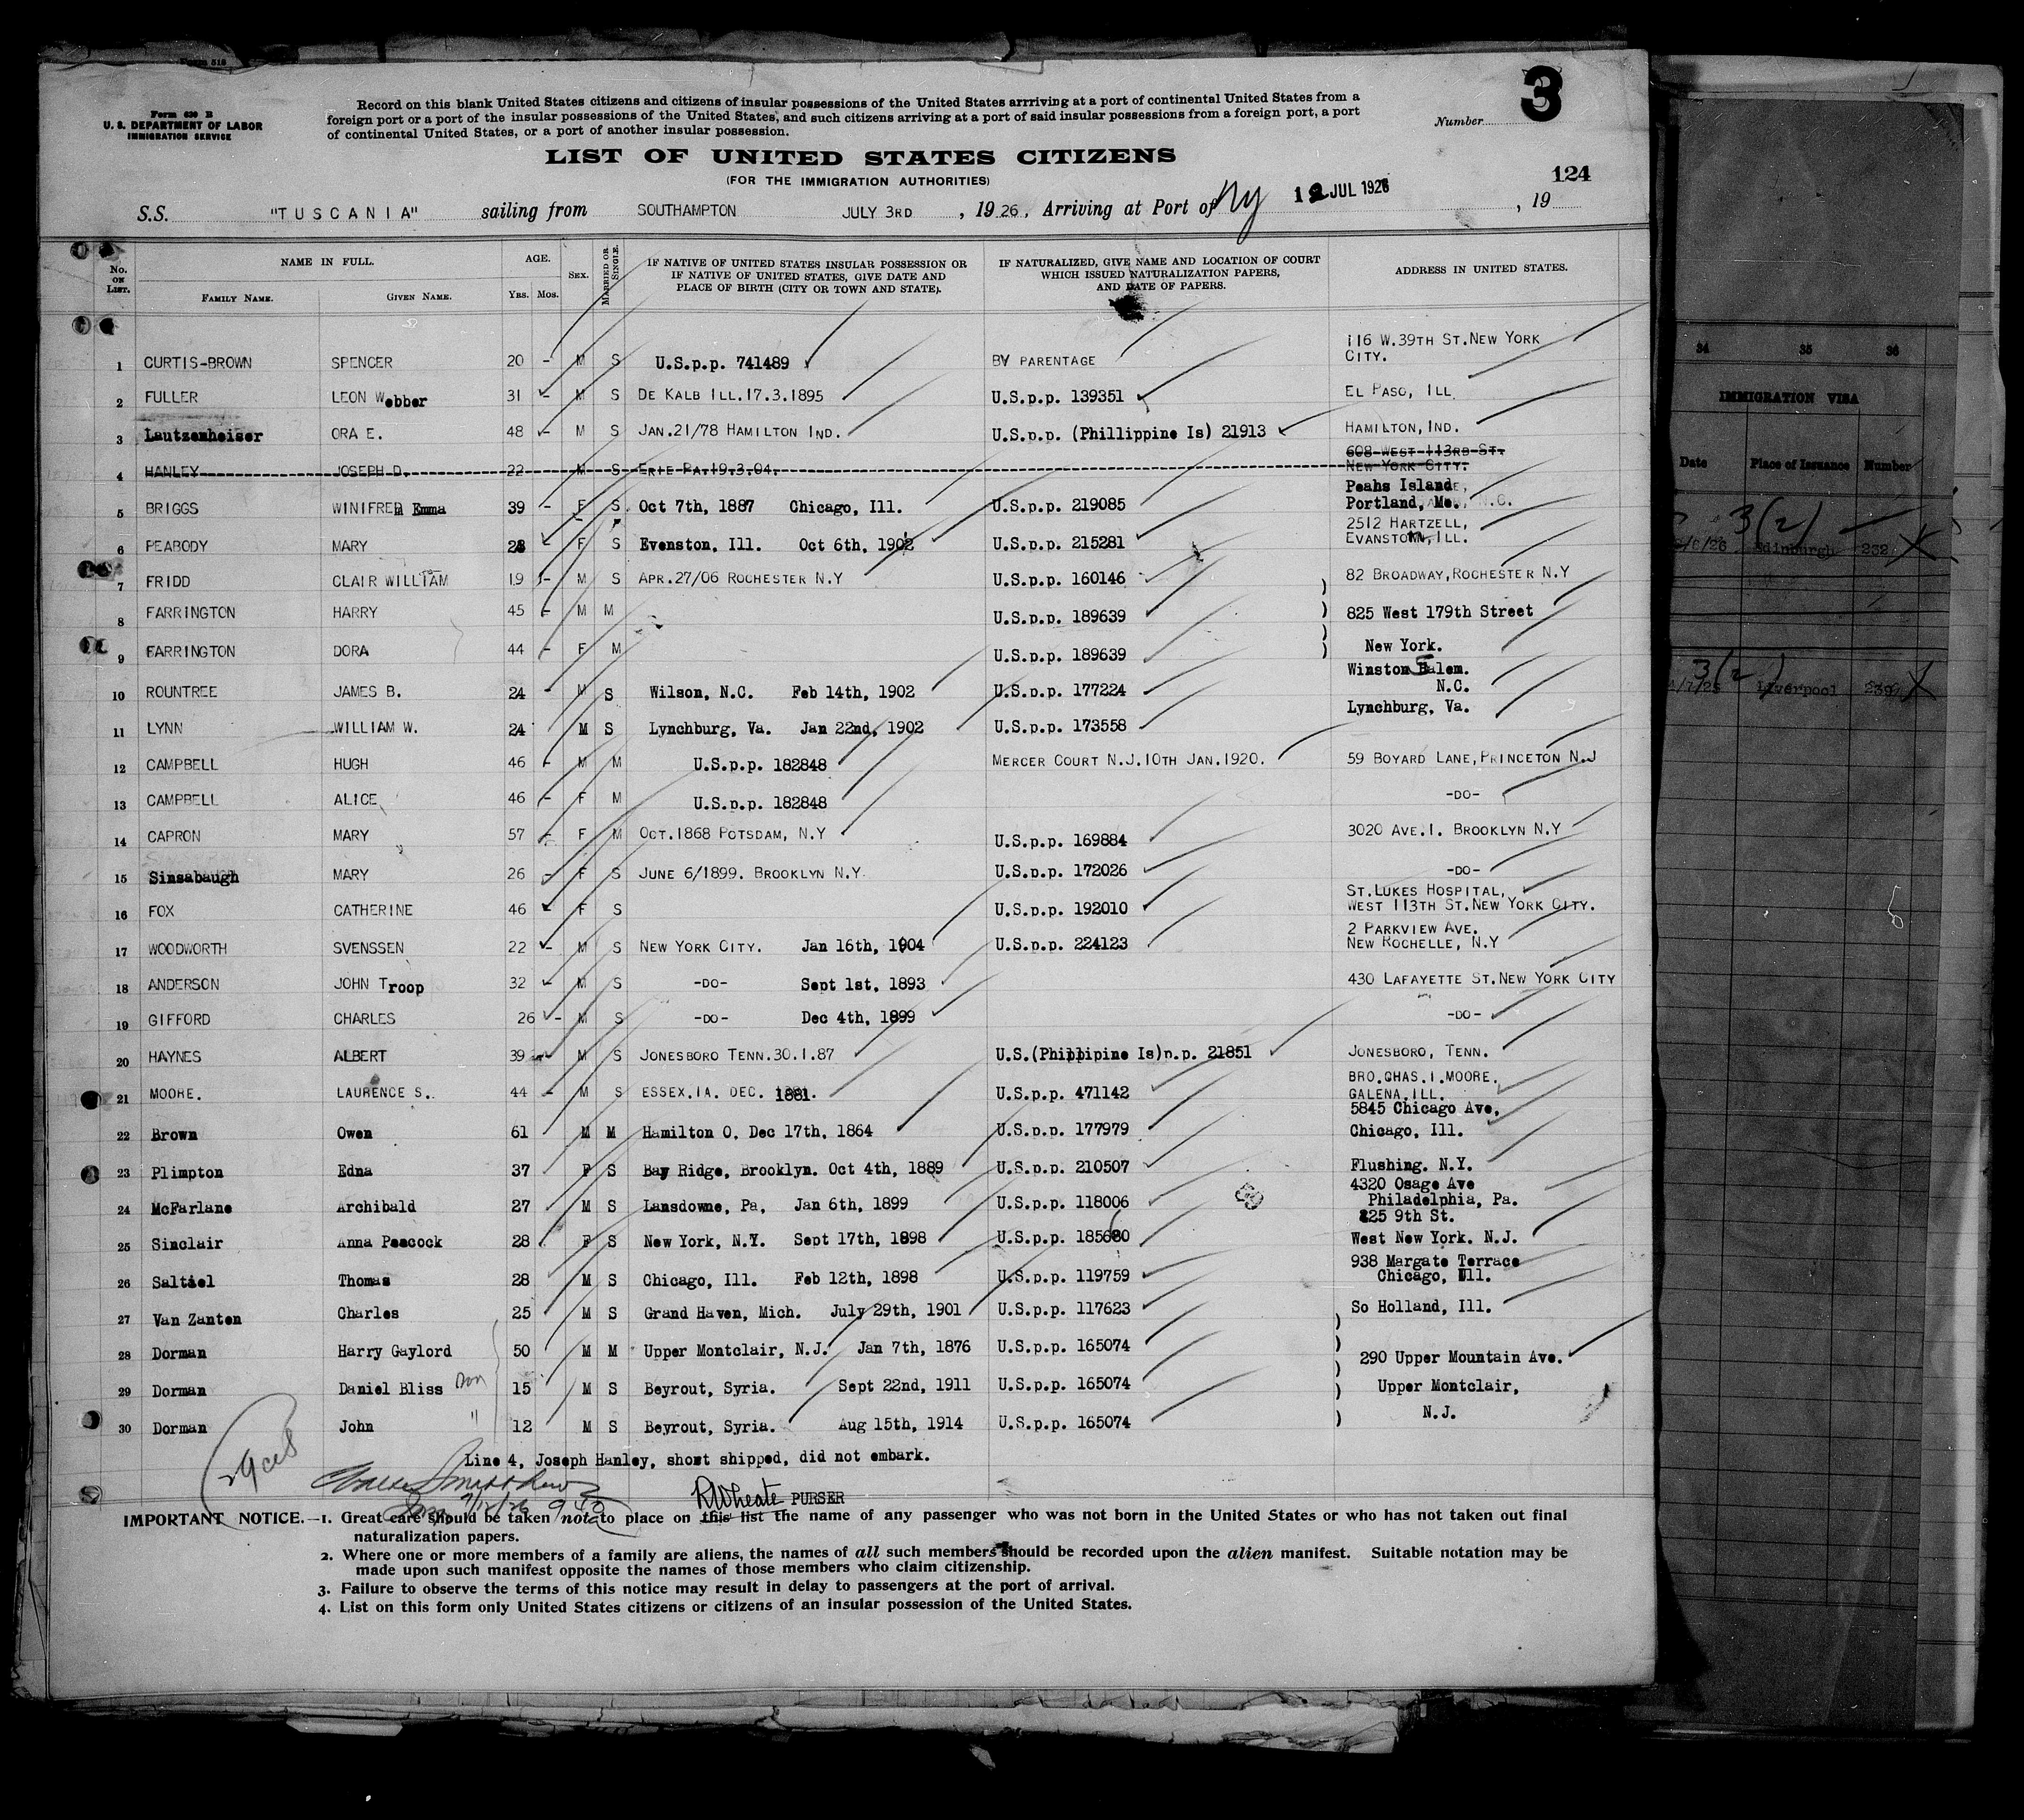 Form 630 B
U. S. DEPARTMENT OF LABOR
IMMIGRATION SERVICE
Record on this blank United States citizens and citizens of insular possessions of the United States arrriving at a port of continental United States from a
foreign port or a port of the insular possessions of the United States, and such citizens arriving at a port of said insular possessions from a foreign port, a port
of continental United States, or a port of another insular possession.
Number 3
LIST OF UNITED STATES CITIZENS
(FOR THE IMMIGRATION AUTHORITIES)
124
S.S. "TUSCANIA" sailing from SOUTHAMPTON JULY 3RD, 1926, Arriving at Port of NY 12 JUL 1926, 19
No. ON LIST. NAME IN FULL. AGE. SEX. MARRIED OR SINGLE. IF NATIVE OF UNITED STATES INSULAR POSSESSION OR IF NATIVE OF UNITED STATES, GIVE DATE AND PLACE OF BIRTH (CITY OR TOWN AND STATE). IF NATURALIZED, GIVE NAME AND LOCATION OF COURT WHICH ISSUED NATURALIZATION PAPERS, AND DATE OF PAPERS. ADDRESS IN UNITED STATES.
FAMILY NAME. GIVEN NAME. Yrs. Mos.
1 CURTIS-BROWN SPENCER 20 - M S U.S.p.p. 741489 BY PARENTAGE 116 W.39TH ST.NEW YORK CITY.
2 FULLER LEON Webber 31 - M S DE KALB ILL.17.3.1895 U.S.p.p. 139351 EL PASO, ILL
3 Lautzenheiser ORA E. 48 - M S JAN.21/78 HAMILTON IND. U.S.p.p. (Phillippine Is) 21913 HAMILTON, IND.
4 HANLEY JOSEPH D. 22 M S ERIE PA.19.3.04. 608 WEST 113RD ST. NEW YORK CITY.
5 BRIGGS WINIFRED Emma 39 - F S Oct 7th, 1887 Chicago, Ill. U.S.p.p. 219085 Peahs Island, Portland, Me.
6 PEABODY MARY 23 - F S Evenston, Ill. Oct 6th, 1902 U.S.p.p. 215281 2512 HARTZELL, EVANSTON, ILL.
7 FRIDD CLAIR WILLIAM 19 - M S APR.27/06 ROCHESTER N.Y U.S.p.p. 160146 82 BROADWAY,ROCHESTER N.Y
8 FARRINGTON HARRY 45 - M M U.S.p.p. 189639 825 West 179th Street
9 FARRINGTON DORA 44 - F M U.S.p.p. 189639 New York.
10 ROUNTREE JAMES B. 24 - M S Wilson, N.C. Feb 14th, 1902 U.S.p.p. 177224 Winston Salem. N.C.
11 LYNN WILLIAM W. 24 M S Lynchburg, Va. Jan 22nd, 1902 U.S.p.p. 173558 Lynchburg, Va.
12 CAMPBELL HUGH 46 - M M U.S.p.p. 182848 MERCER COURT N.J.10TH JAN.1920. 59 BOYARD LANE,PRINCETON N.J
13 CAMPBELL ALICE 46 - F M U.S.p.p. 182848 -DO-
14 CAPRON MARY 57 - F M OCT.1868 POTSDAM, N.Y U.S.p.p. 169884 3020 AVE.I. BROOKLYN N.Y
15 Sinsabaugh MARY 26 - F S JUNE 6/1899. BROOKLYN N.Y. U.S.p.p. 172026 -DO-
16 FOX CATHERINE 46 - F S U.S.p.p. 192010 ST.LUKES HOSPITAL, WEST 113TH ST.NEW YORK CITY.
17 WOODWORTH SVENSSEN 22 - M S NEW YORK CITY. Jan 16th, 1904 U.S.p.p. 224123 2 PARKVIEW AVE. NEW ROCHELLE, N.Y
18 ANDERSON JOHN Troop 32 - M S -DO- Sept 1st, 1893 430 LAFAYETTE ST.NEW YORK CITY
19 GIFFORD CHARLES 26 - M S -DO- Dec 4th, 1899 -DO-
20 HAYNES ALBERT 39 - M S JONESBORO TENN.30.1.87 U.S.(Phippipine Is)p.p. 21851 JONESBORO, TENN.
21 MOORE. LAURENCE S. 44 - M S ESSEX.IA. DEC. 1881. U.S.p.p. 471142 BRO.CHAS.I.MOORE. GALENA.ILL.
22 Brown Owen 61 M M Hamilton O, Dec 17th, 1864 U.S.p.p. 177979 5845 Chicago Ave, Chicago, Ill.
23 Plimpton Edna 37 F S Bay Ridge, Brooklyn. Oct 4th, 1889 U.S.p.p. 210507 Flushing. N.Y.
24 McFarlane Archibald 27 M S Lansdowne, Pa, Jan 6th, 1899 U.S.p.p. 118006 4320 Osage Ave Philadelphia, Pa.
25 Sinclair Anna Peacock 28 F S New York, N.Y. Sept 17th, 1898 U.S.p.p. 185660 825 9th St. West New York. N.J.
26 Saltiel Thomas 28 M S Chicago, Ill. Feb 12th, 1898 U.S.p.p. 119759 938 Margate Terrace Chicago, Ill.
27 Van Zanten Charles 25 M S Grand Haven, Mich. July 29th, 1901 U.S.p.p. 117623 So Holland, Ill.
28 Dorman Harry Gaylord 50 M M Upper Montclair, N.J. Jan 7th, 1876 U.S.p.p. 165074 290 Upper Mountain Ave.
29 Dorman Daniel Bliss son 15 M S Beyrout, Syria. Sept 22nd, 1911 U.S.p.p. 165074 Upper Montclair,
30 Dorman John " 12 M S Beyrout, Syria. Aug 15th, 1914 U.S.p.p. 165074 N.J.
Line 4, Joseph Hanley, short shipped, did not embark.
PURSER
IMPORTANT NOTICE.—1. Great care should be taken not to place on this list the name of any passenger who was not born in the United States or who has not taken out final
naturalization papers.
2. Where one or more members of a family are aliens, the names of all such members should be recorded upon the alien manifest. Suitable notation may be
made upon such manifest opposite the names of those members who claim citizenship.
3. Failure to observe the terms of this notice may result in delay to passengers at the port of arrival.
4. List on this form only United States citizens or citizens of an insular possession of the United States.
34 35 36
IMMIGRATION VISA
Date Place of Issuance Number
3(2)
Edinburgh 232
3(2)
Liverpool 2397